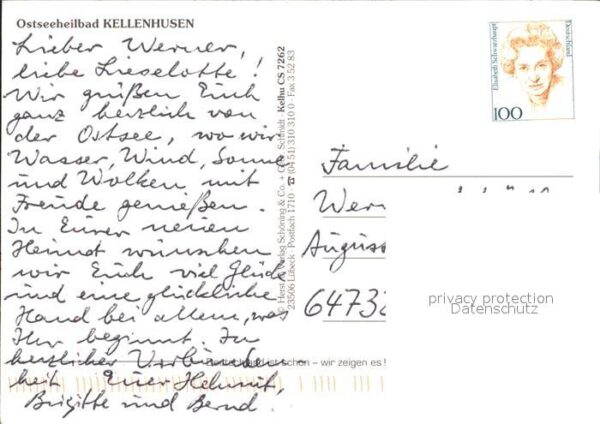 Ostseeheilbad KELLENHUSEN
Lieber Werner,
liebe Lieselotte!
Wir grüßen Euch
ganz herzlich von
der Ostsee, wo wir
Wasser, Wind, Sonne
und Wolken mit
Freude genießen.
In Eurer neuen
Heimat wünschen
wir Euch viel Glück
und eine glückliche
Hand bei allem, was
Ihr beginnt. In
herzlicher Verbunden-
heit Euer Helmut,
Brigitte und Bernd.
Schöning & Co. + Schmidt · Kelhu CS 7262
23506 Lübeck · Postfach 1710 · ☎ (04 51) 310 310 0 · Fax 3 52 83
Elisabeth Schwarzhaupt
Deutschland
100
Familie
Wer
Augus
6473
privacy protection
Datenschutz
ist schön – wir zeigen es!